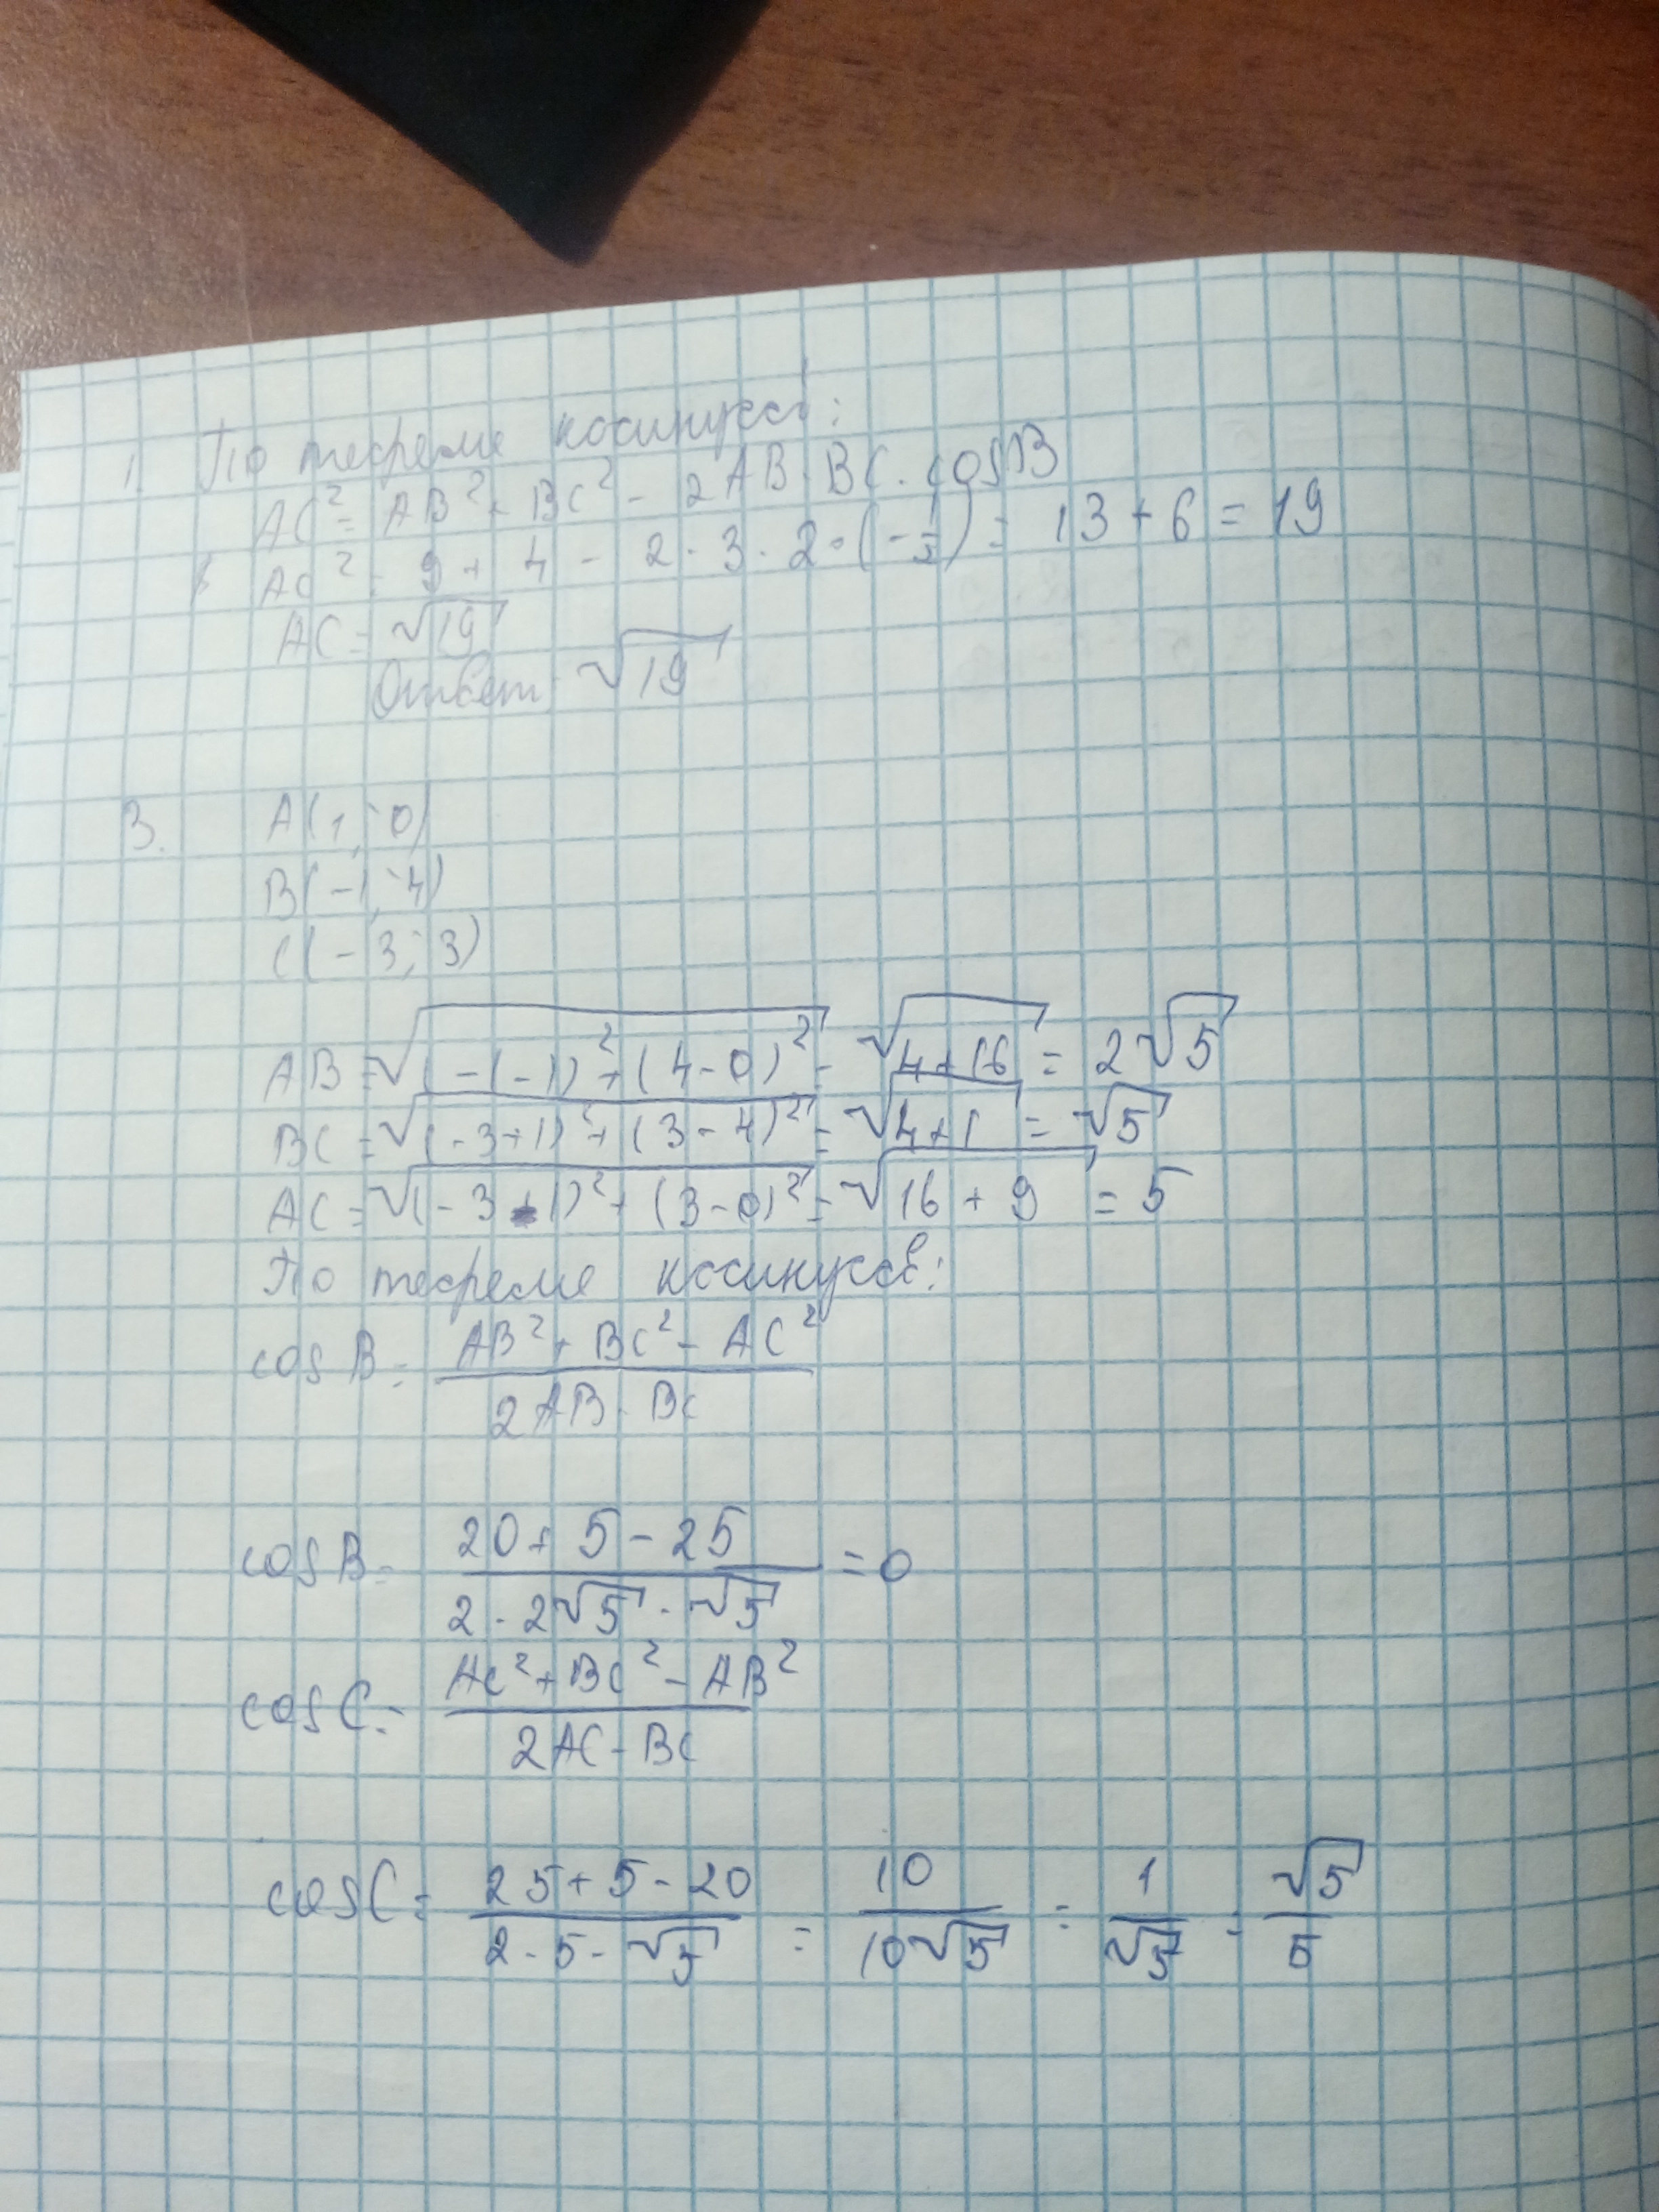 1. По теореме косинусов:
AC² = AB² + BC² - 2AB · BC · cosB
AC² = 9 + 4 - 2 · 3 · 2 · (-½) = 13 + 6 = 19
AC = √19
Ответ √19
3. A(1; 0)
B(-1; 4)
C(-3; 3)
AB = √((-(-1))² + (4-0)²) = √(4+16) = 2√5
BC = √((-3+1)² + (3-4)²) = √(4+1) = √5
AC = √((-3-1)² + (3-0)²) = √(16+9) = 5
По теореме косинусов:
cos B = (AB² + BC² - AC²)/(2AB · BC)
cos B = (20 + 5 - 25)/(2 · 2√5 · √5) = 0
cos C = (AC² + BC² - AB²)/(2AC · BC)
cos C = (25 + 5 - 20)/(2 · 5 · √5) = 10/(10√5) = 1/√5 = √5/5